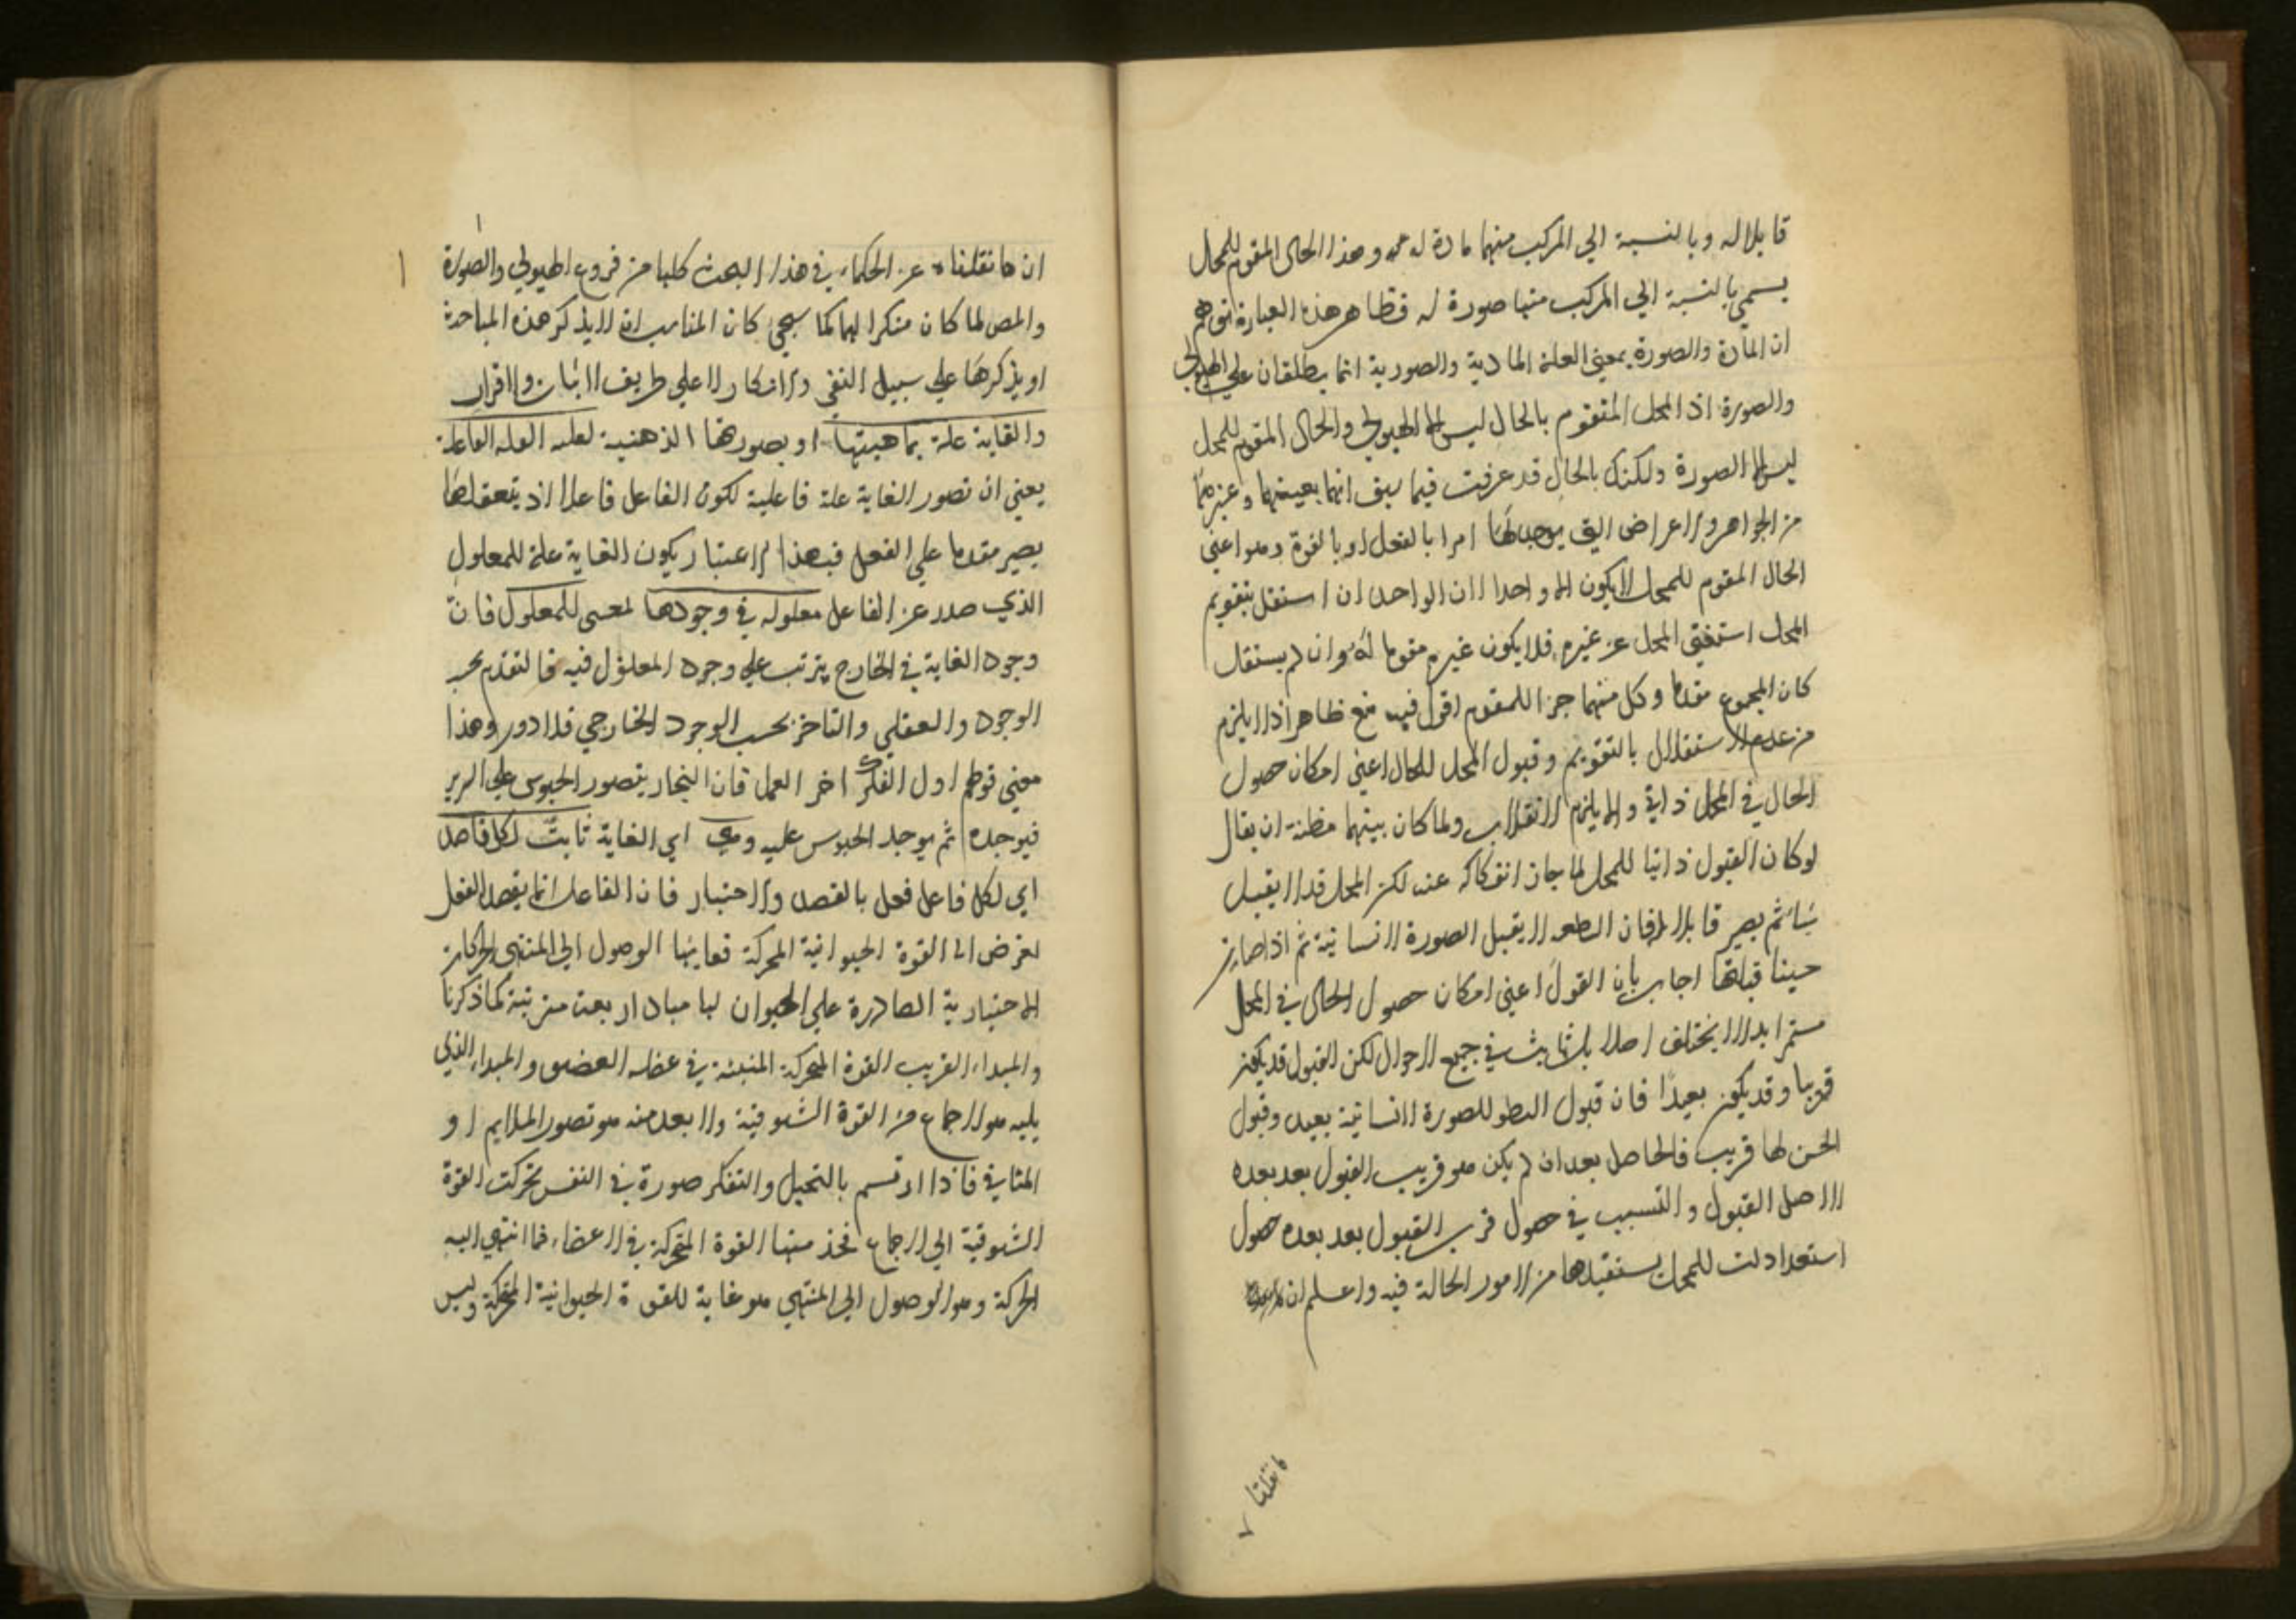 قابلا له وبالنسبة الي المركب منهما مادة له وهذا الحال المقوم للمحال
يسمي بالنسبة الي المركب منها صورة له فظاهر هذه العبارة توهم
ان المادة والصورة بمعني العلة المادية والصورية انما يطلقان علي الهيولي
والصورة اذ المحل المتقوم بالحال ليس الا الهيولي والحال المقوم للمحل
ليس الا الصورة ولكنك بالحال قد عرفت فيما سبق انهما بعينهما وغيرهما
من الجواهر والاعراض التي يوجد لها امرا بالفعل او بالقوة وهو اعني
الحال المقوم للمحل لا يكون الا واحدا لان الواحد ان استقل بتقويم
المحل استغني المحل عن غيره فلا يكون غيره مقوما له وان لم يستقل
كان المجموع مقوما وكل منهما جزا للمقوم اقول فيه منع ظاهر اذ لا يلزم
من عدم الاستقلال بالتقويم وقبول المحل للحال اعني امكان حصول
الحال في المحل ذاتي والا يلزم الانقلاب ولما كان بينهما مظنة ان يقال
لو كان القبول ذاتيا للمحل لما جاز انفكاكه عنه لكن المحل قد لا يقبل
شيا ثم يصير قابلا له فان النطفه لا يقبل الصورة الانسانية ثم اذا صارت
جنينا قبلتها اجاب بان القول اعني امكان حصول الحال في المحل
مستمرا بدا لا يختلف اصلا بل ثابت في جميع الاحوال لكن القبول قد يكون
قريبا وقد يكون بعيدا فان قبول النطو للصورة الانسانية بعيد وقبول
الجنين لها قريب فالحاصل بعد ان لم يكن هو قريب القبول بعد بعده
لا اصل القبول والتسبب في حصول قرب القبول بعد بعده حصول
استعدادات للمحل يستفيدها من الامور الحالة فيه واعلم ان
ما نقلنا
ان ما نقلناه عن الحكماء في هذا البحث كلها من فروع الهيولي والصورة
والمص لما كان منكرا لهما كما سيجي كان المناسب ان لا يذكر هذه المباحث
او يذكرها علي سبيل النفي والانكار لا علي طريق الاثبات والاقرار
والغاية علة بماهيتها او بصورتها الذهنية لعلية العلة الفاعلة
يعني ان تصور الغاية علة فاعلية لكون الفاعل فاعلا اذ يتعقلها
يصير مقدما علي الفعل فبهذا الاعتبار يكون الغاية علة للمعلول
الذي صدر عن الفاعل معلوله في وجودها للمعلول فان
وجود الغاية في الخارج يترتب علي وجود المعلول فيه فالتقدم بحسب
الوجود والعقلي والتاخر بحسب الوجود الخارجي فلا دور وهذا
معني قولهم اول الفكر اخر العمل فان النجار يتصور الجلوس علي السرير
فيوجده ثم يوجد الجلوس عليه وهي اي الغاية ثابت لكل قاصد
اي لكل فاعل فعل بالقصد والاختيار فان الفاعل انما يقصد الفعل
لغرض اما القوة الحيوانية المحركة فغايتها الوصول الي المنتهي الحركات
الاختيارية الصادرة علي الحيوان لها مباد اربعة مترتبة كما ذكرنا
والمبداء القريب القوة المحركة المنبثة في عضله العضو والمبداء الذي
يليه هو الاجماع من القوة الشوقية والابعد منه هو تصور الملايم او
المنافي فاذا ارتسم بالتخيل والتفكر صورة في النفس تحركت القوة
الشوقية الي الاجماع فخذ منها القوة المحركة في الاعضاء فما انتهي اليه
الحركة وهو الوصول الي المنتهي هو غاية للقوة الحيوانية المحركة وليس